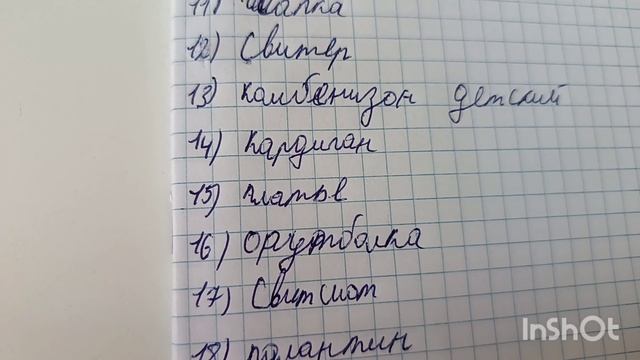 11) шапка
12) Свитер
13) комбенизон детский
14) кардиган
15) платье
16) футболка
17) Свитшот
18) палантин
InShOt